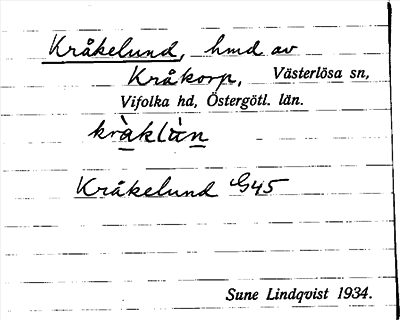 Kråkelund, hmd av
Kråkorp, Västerlösa sn,
Vifolka hd, Östergötl. län.
kràklùn
Kråkelund G45
Sune Lindqvist 1934.